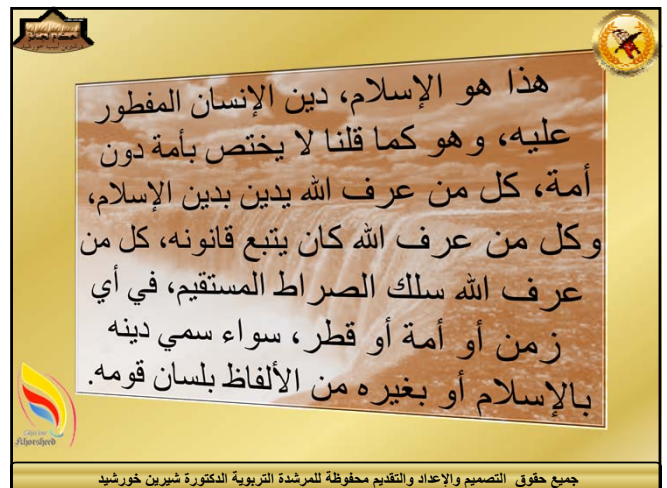 هذا هو الإسلام، دين الإنسان المفطور
عليه، وهو كما قلنا لا يختص بأمة دون
أمة، كل من عرف الله يدين بدين الإسلام،
وكل من عرف الله كان يتبع قانونه، كل من
عرف الله سلك الصراط المستقيم، في أي
زمن أو أمة أو قطر، سواء سمي دينه
بالإسلام أو بغيره من الألفاظ بلسان قومه.
Khorsheed
جميع حقوق التصميم والإعداد والتقديم محفوظة للمرشدة التربوية الدكتورة شيرين خورشيد